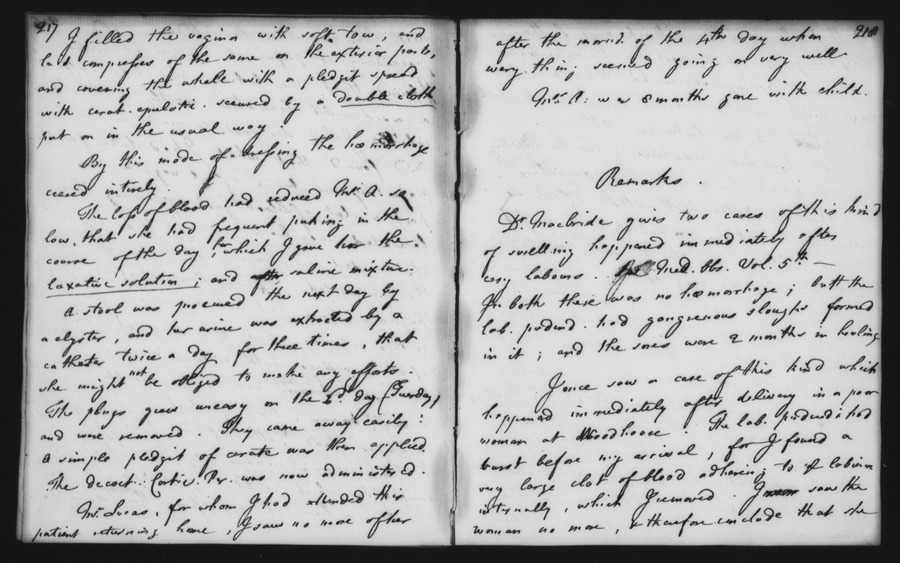 217
I filled the vagina with soft tow, and
laid compresses of the same on the exterior parts,
and covering the whole with a pledgit spread
with cerat. epulotic. secured by a double cloth
put on in the usual way.
By this mode of dressing the hœmorrhage
ceased intirely.
The loss of blood had reduced Mrs. A. so
low, that she had frequent puking in the
course of the day, for which I gave her the
laxative solution; and after saline mixture.
A stool was procured the next day by
a clyster, and her urine was extracted by a
catheter twice a day for three times, that
she might not be obliged to make any efforts.
The plugs grew uneasy on the 2d day (Tuesday)
and were removed. They came away easily:
a simple pledgit of cerate was then applied.
The decoct. Cortic. Per. was now administered.
Mr. Lucas, for whom I had attended this
patient returning home, I saw no more of her
218
after the morng. of the 4th day when
every thing seemed going on very well
Mrs. A: was 8 months gone with child.
Remarks.
Dr. Macbride gives two cases of this kind
of swelling happened immediately after
easy labours. Med. Obs. Vol. 5th —
In both there was no hœmorrhage; but the
lab. pudend. had gangrenous sloughs formed
in it; and the sores were 2 months in healing
I once saw a case of this kind which
happened immediately after delivery in a poor
woman at Woodhouse. The lab. pudend: had
burst before my arrival, for I found a
very large clot of blood adhering to the labium
internally, which I removed. I saw the
woman no more, & therefore conclude that she